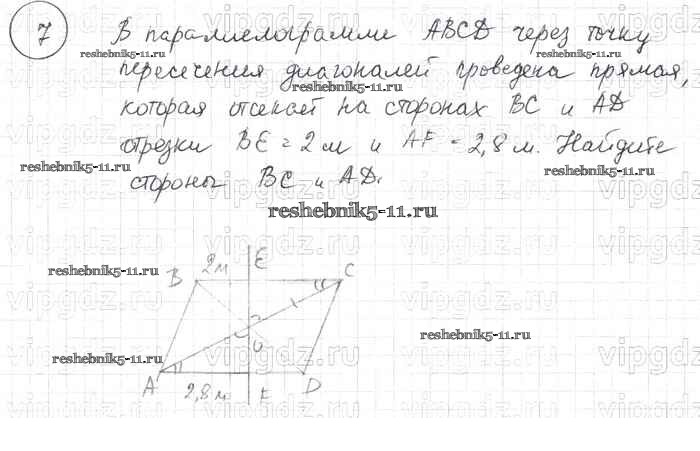 7 В параллелограмме ABCD через точку
reshebnik5-11.ru
reshebnik5-11.ru
пересечения диагоналей проведена прямая,
reshebnik5-11.ru
которая отсекает на сторонах BC и AD
отрезки BE = 2 м и AF = 2,8 м. Найдите
reshebnik5-11.ru
reshebnik5-11.ru
стороны BC и AD.
reshebnik5-11.ru
reshebnik5-11.ru
B 2м E C
O
reshebnik5-11.ru
reshebnik5-11.ru
A 2,8 м F D
vipgdz.ru